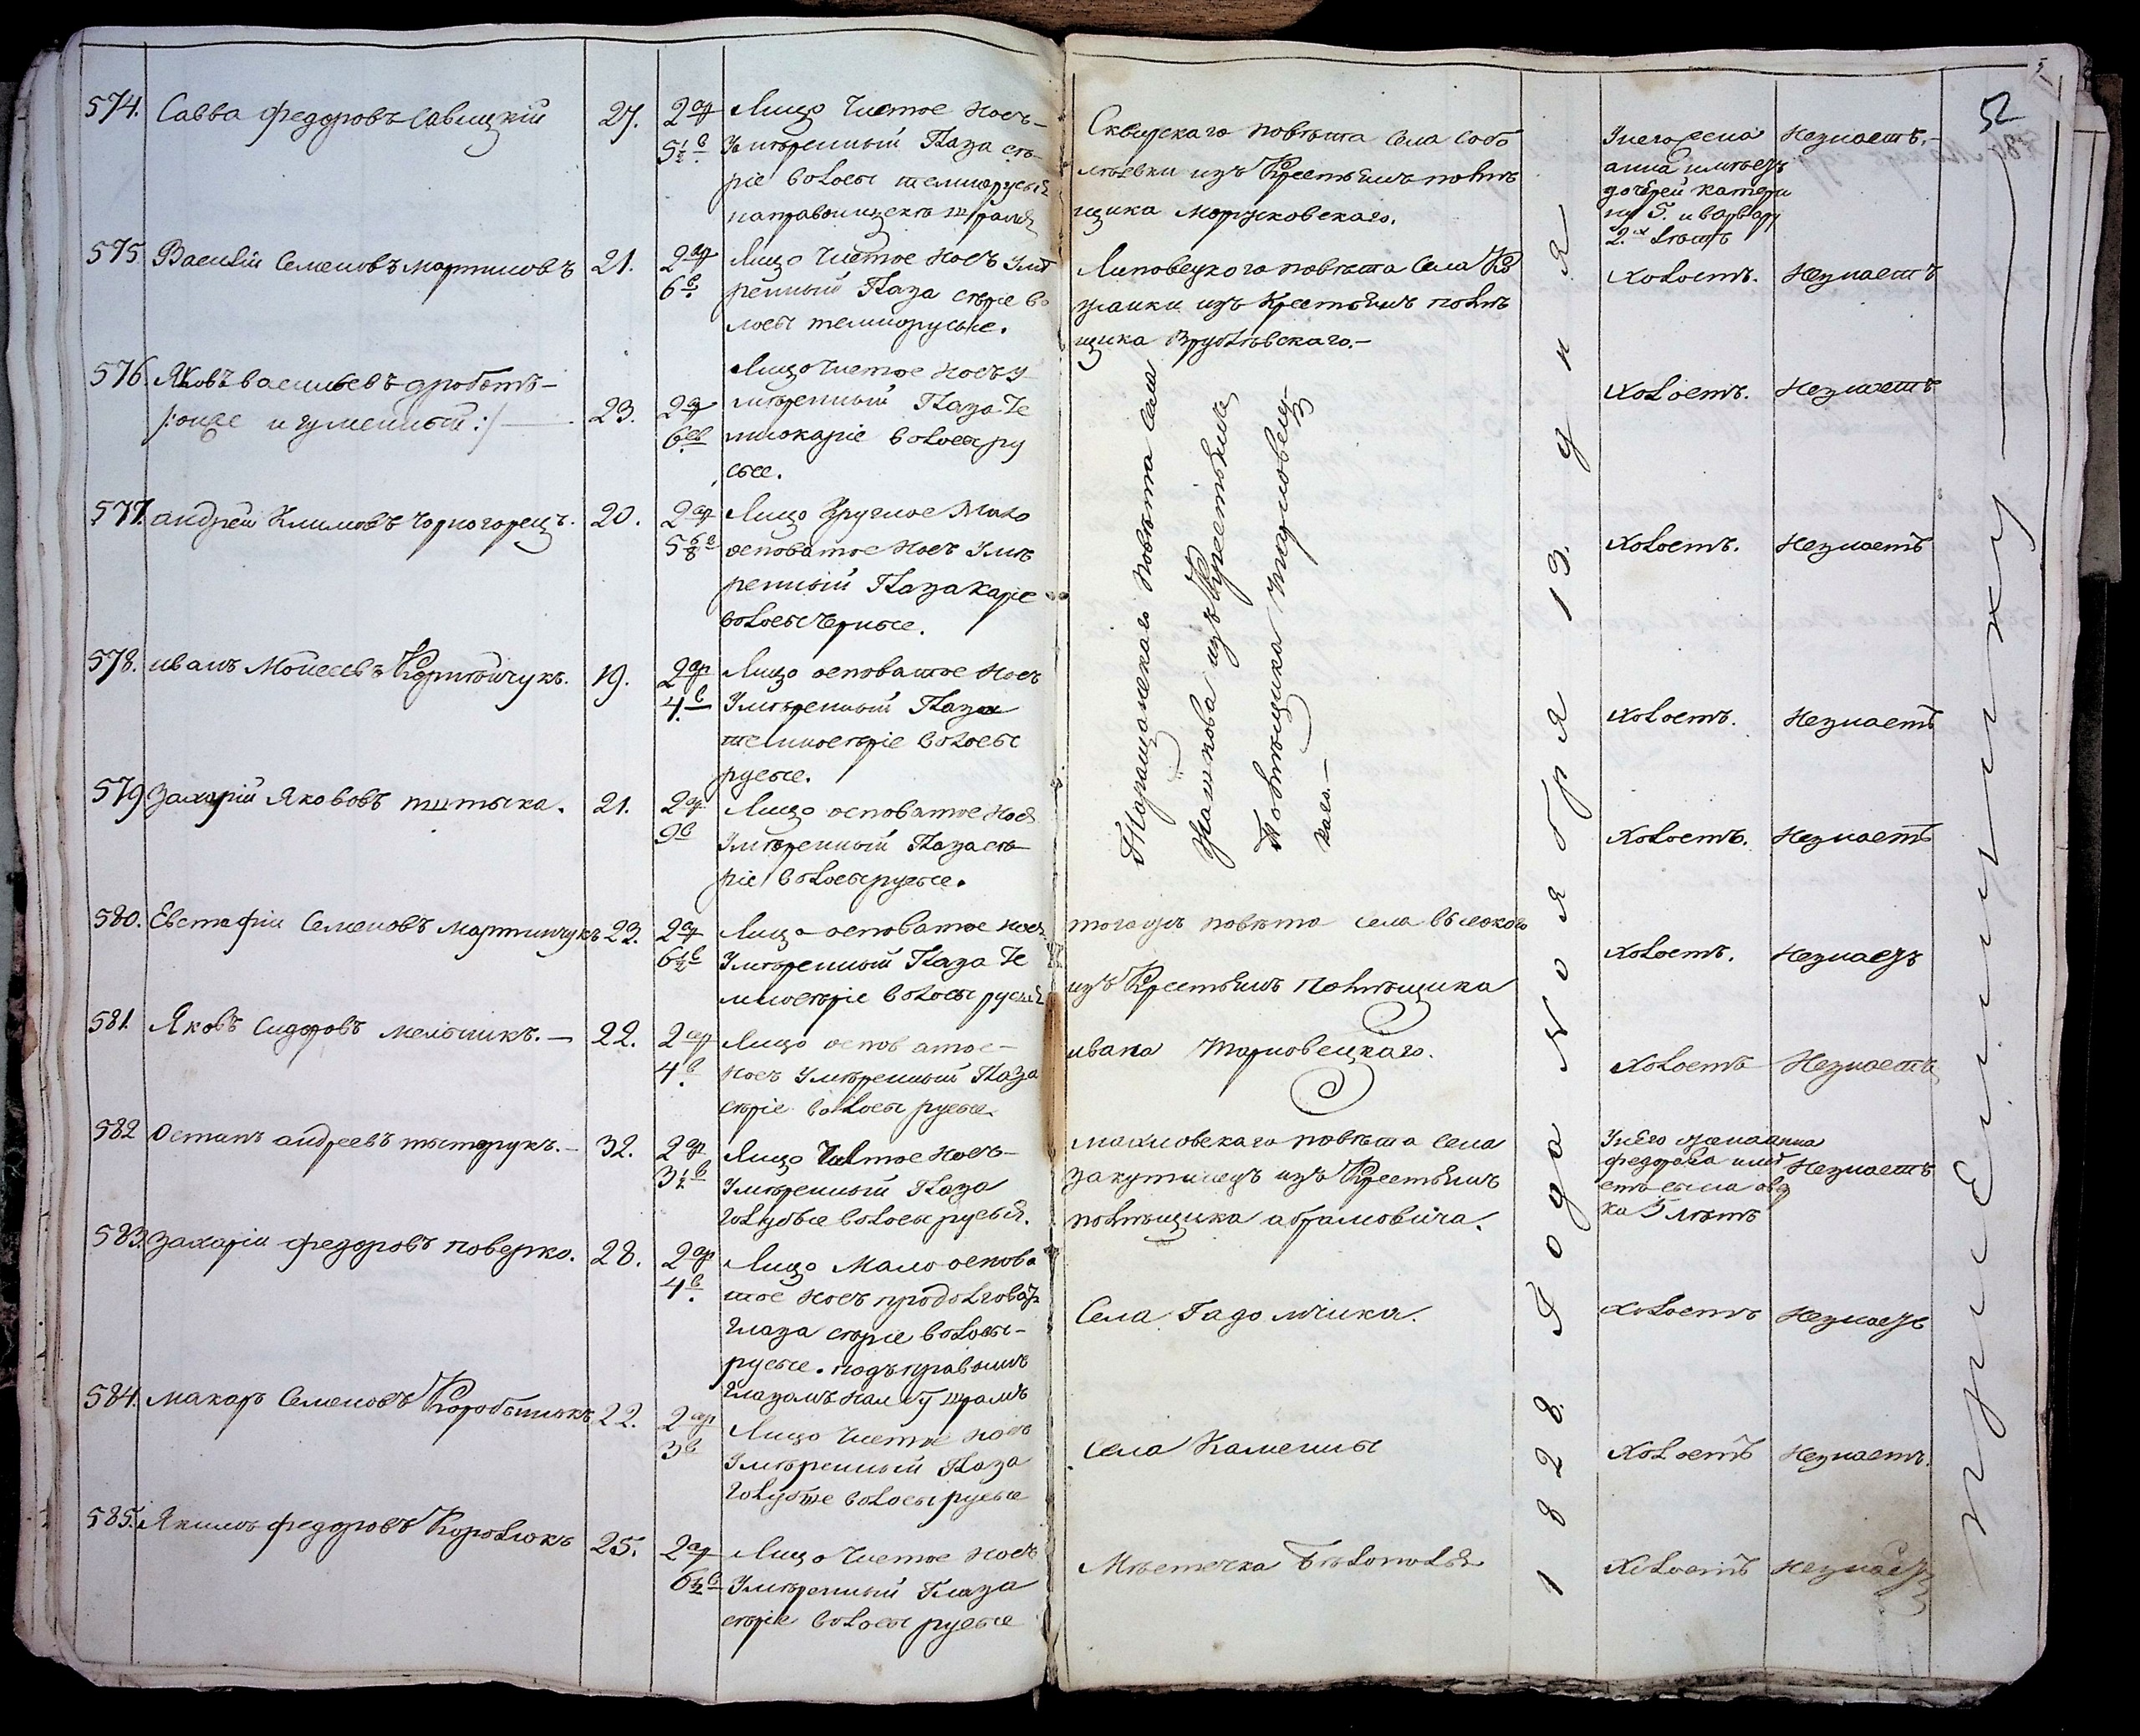 52
574. Савва Федоровъ Савицкій
27.
2 ар
5 1/2 в
Лицо Чистое Носъ
Умѣренный Глаза сѣ
ріе волосы темнорусыя
на правой щекѣ шрамъ
Сквирскаго повѣта Села Собо
лѣевки изъ Крестьянъ помѣ
щика
У него жена
анна имѣетъ
дочерей катери
ну 5. и варвару
2.х лѣтъ
Незнаетъ.
575. Василій Семеновъ мартиновъ
21.
2 ар
6 в.
Лицо Чистое Носъ Умѣ
ренный Глаза сѣріе во
лосы темнорусые.
Липовецкого повѣта Села Ко
изъ Крестьянъ помѣ
щика
Холостъ.
Незнаетъ
576. Яковъ васильевъ дроботъ
/: онже игуменный :/
23.
2 ар
6 в.
Лицо Чистое Носъ У
мѣренный Глаза Те
мнокаріе волосы ру
сые.
Таращанскаго Повѣта Села
Ивашкова изъ Крестьянъ
Помѣщика Тарновец
каго.
Холостъ.
Незнаетъ
577. андрей Климовъ Чорногорецъ.
20.
2 ар
5 6/8 в
Лицо Круглое Мало
осповатое Носъ Умѣ
ренный Глаза Каріе
волосы Черные.
Холостъ.
Незнаетъ
578. иванъ Мойсеевъ Коритойчукъ.
19.
2 ар
4. в
Лицо осповатое Носъ
Умѣренный Глаза
темносѣріе волосы
русые.
Холостъ.
Незнаетъ
579. Захарій Якововъ
21.
2 ар
9 в
Лицо осповатое Носъ
Умѣренный Глаза сѣ
ріе волосы русые.
Холостъ.
Незнаетъ
580. Евстафій Семеновъ мартинчукъ
23.
2 ар
6 1/2 в
Лицо осповатое Носъ
Умѣренный Глаза Те
мносѣріе волосы русыя
тогожъ повѣта села высокого
изъ Крестьянъ Помѣщика
ивана Тарновецкаго.
Холостъ.
Незнаетъ
581. Яковъ Сидоровъ мельникъ.
22.
2 ар
4. в
Лицо осповатое
Носъ Умѣренный Глаза
сѣріе волосы русые
Холостъ
Незнаетъ
582 Остапъ андреевъ
32.
2 ар
3 1/2 в
Лицо Чистое Носъ
Умѣренный Глаза
голубые волосы русыя.
махновскаго повѣта села
закутинецъ изъ Крестьянъ
помѣщика абрамовича.
У него жена анна
федорова имѣ
етъ сына
ка 5 лѣтъ
Незнаетъ
583. Захарій Федоровъ поверко.
28.
2 ар
4. в
Лицо Мало оспова
тое Носъ продолговат
Глаза сѣріе волосы
русые. подъ правымъ
Глазомъ на лбу шрамъ
Села
Холостъ
Незнаетъ
584. Макаръ Семеновъ
22.
2 ар
3 в
Лицо Чистое Носъ
Умѣренный Глаза
Голубые волосы русые
Села Каменны
Холостъ
Незнаетъ.
585. Якимъ федоровъ Королюкъ
25.
2 ар
6 1/2 в
Лицо Чистое Носъ
Умѣренный Глаза
сѣріе волосы русые
Мѣстечка Бѣлополья
Холостъ
Незнаетъ
1828. Года Ноября 13. дня